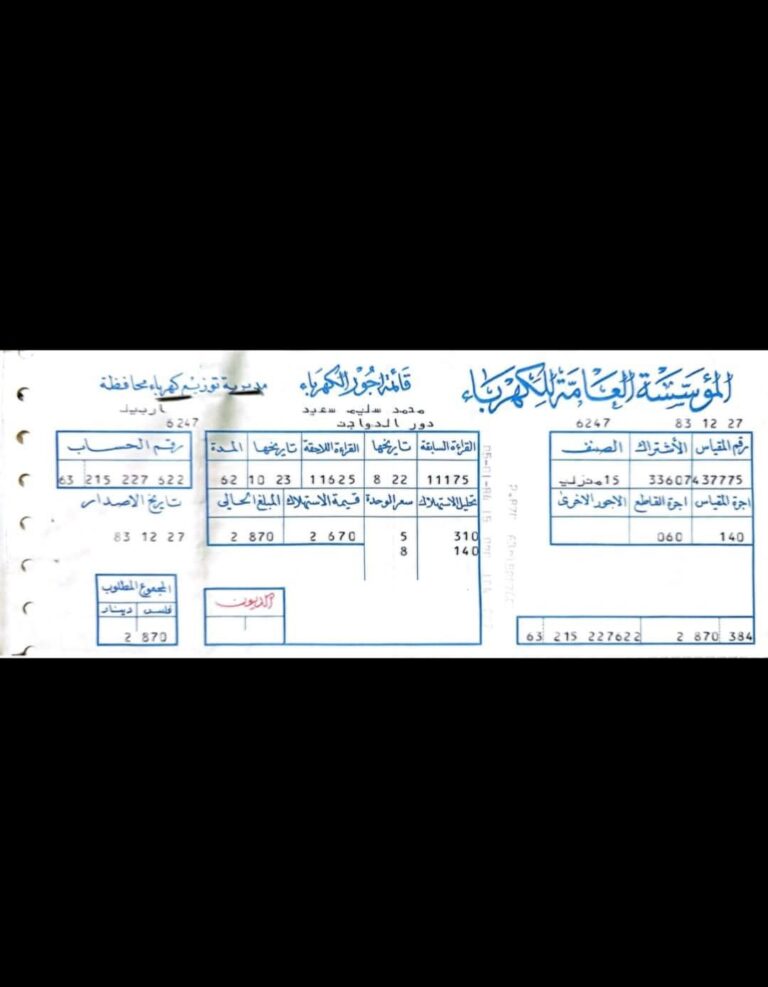 المؤسسة العامة للكهرباء
قائمة اجور الكهرباء
مديرية توزيع كهرباء محافظة
اربيل
83 12 27
6247
محمد سليم سعيد
دور الدواجن
6247
رقم المقياس الأشتراك الصنف
37775 336074 15 منزلي
اجرة المقياس اجرة القاطع الاجور الاخرى
140 060
384 2 870 63 215 227622
القراءة السابقة تاريخها القراءة اللاحقة تاريخها المدة
11175 8 22 11625 10 23 62
تحليل الاستهلاك سعر الوحدة قيمة الاستهلاك المبلغ الحالي
310 5 2 670 2 870
140 8
الديون
رقم الحساب
63 215 227 622
تاريخ الاصدار
83 12 27
المجموع المطلوب
فلس دينار
2 870